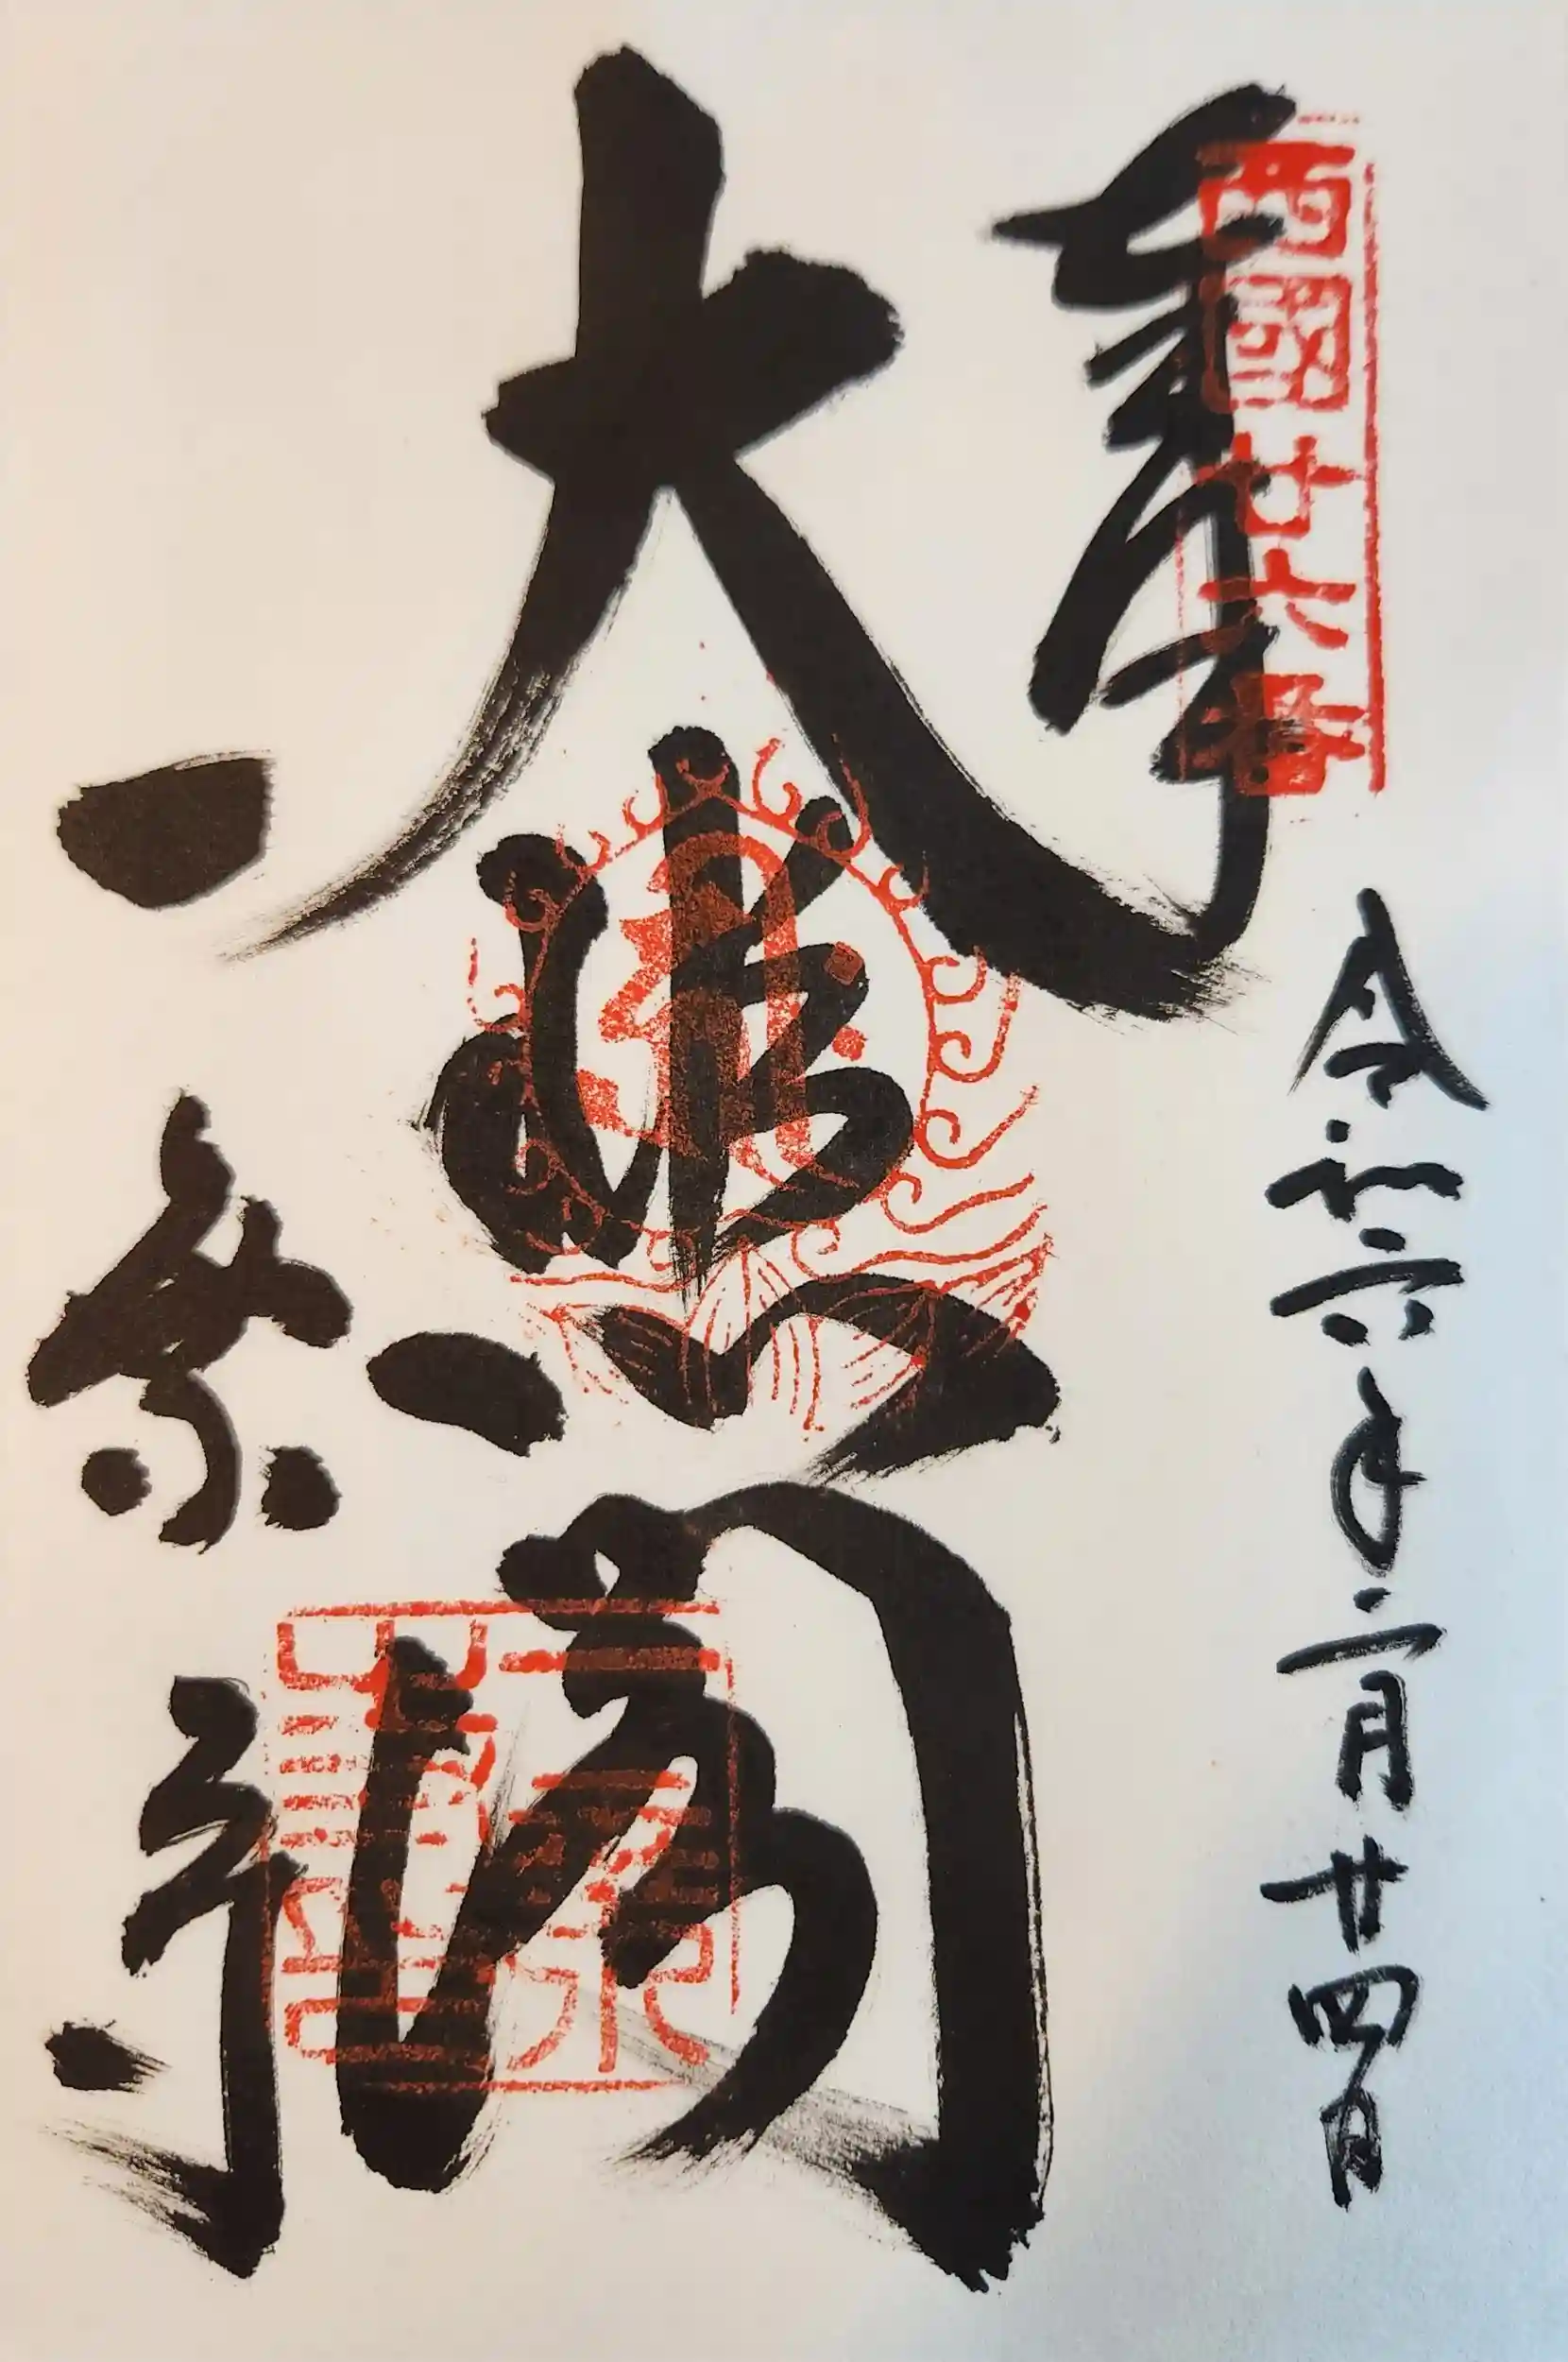 西國廿六番
奉拝
令和六年二月廿四日
大悲閣
一乗寺